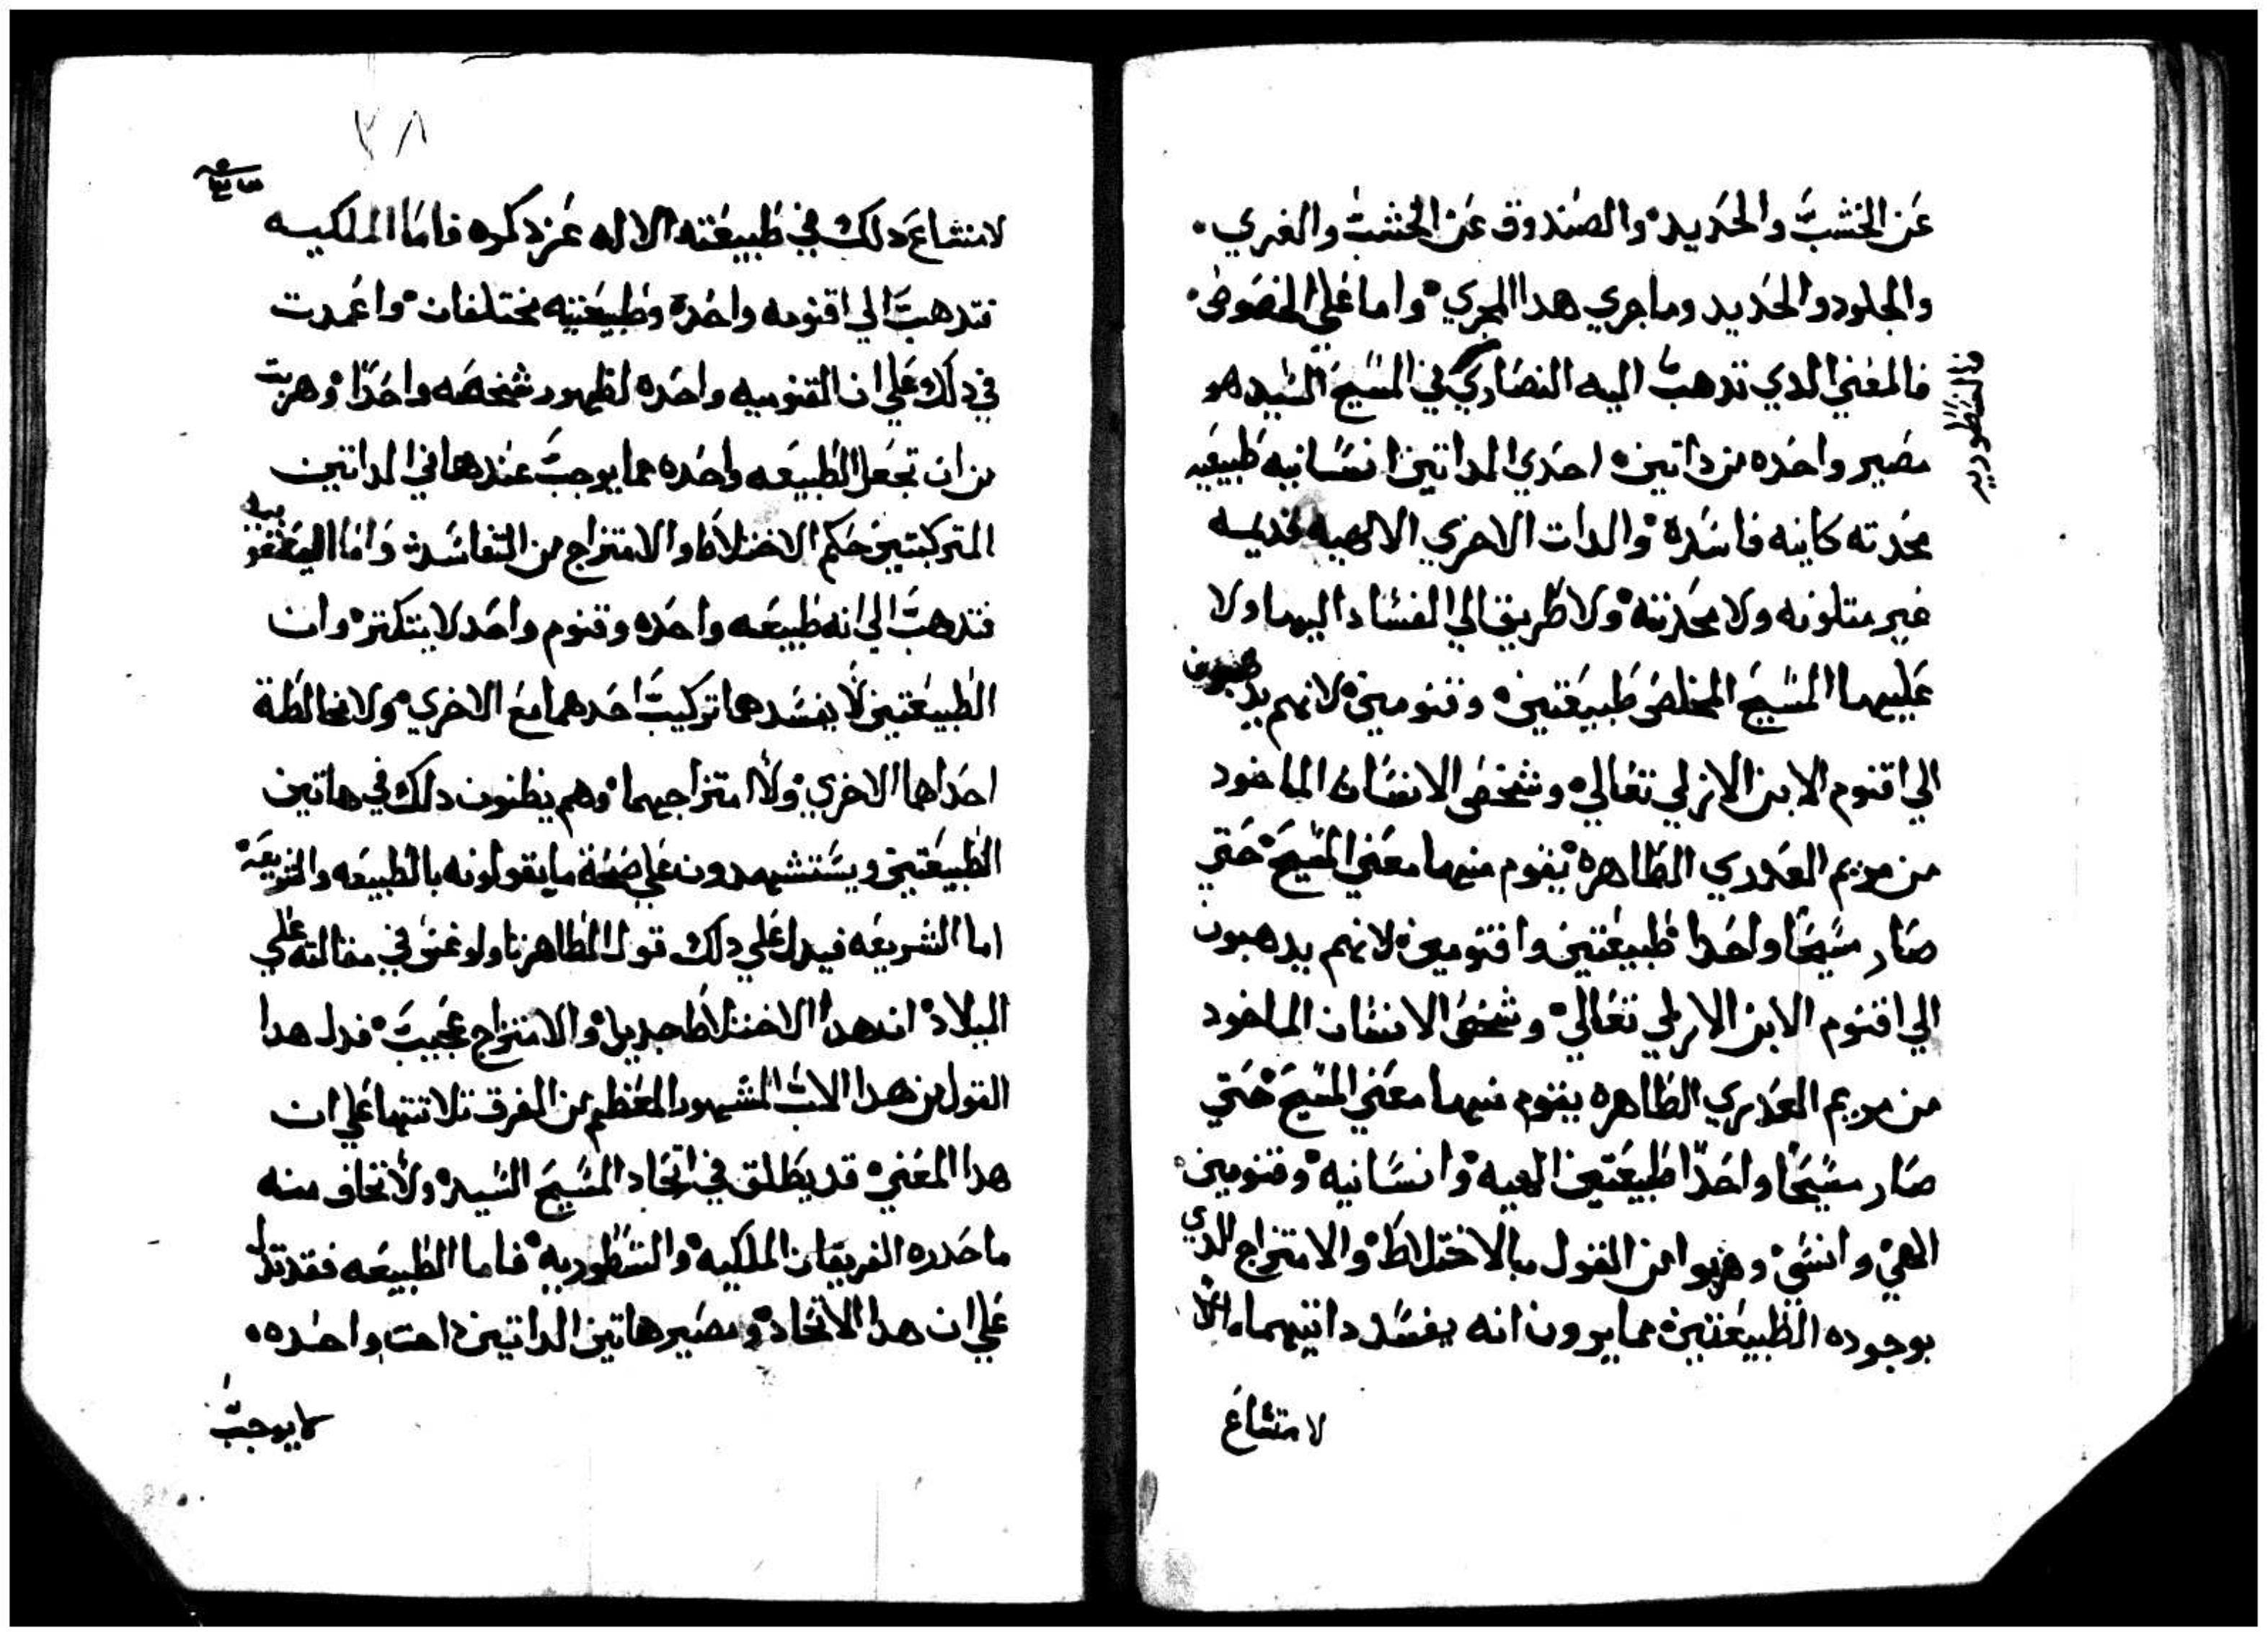 عن الخشب والحديد والصندوق عن الخشب والغري
والجلود والحديد وما جري هدا المجري واما علي الخصوص
فالمعني الدي تدهب اليه النصاري في المسيح السيد هو
مصير واحده من داتين احدي الداتين انسانيه طبيعيه
محدته كاينه فاسدة والدات الاخري الالهيه قديمه
غير متلونه ولا محدته ولا طريق الي الفساد اليها ولا
عليها المسيح المخلص طبيعتين وقنومين لانهم يدهبون
الي اقنوم الابن الازلي تعالي وشخص الانسان الماخود
من مريم العدري الطاهره يقوم منهما معني المسيح حتي
صار مسيحا واحدا طبيعتين واقنومين لانهم يدهبون
الي اقنوم الابن الازلي تعالي وشخص الانسان الماخود
من مريم العدري الطاهره يقوم منهما معني المسيح حتي
صار مسيحا واحدا طبيعتين الهيه وانسانيه وقنومين
الاهي وانسي وهربوا من القول بالاختلاط والامتزاج الدي
بوجوده الطبيعتين مما يرون انه يفسد داتيهما
لامتناع
٣٨
لامتناع دلك في طبيعته الاله عز دكره فاما الملكيه
فتدهب الي اقنومه واحدة وطبيعتيه مختلفان واعمدت
في دلك علي ان القنوميه واحده لظهور شخصه واحدا وهربت
من ان تجعل الطبيعه واحده مما يوجب عندها في الداتين
المتركبتين حكم الاختلاط والامتزاج من التفاسد واما اليعقوبيه
فتدهب الي انه طبيعه واحده وقنوم واحد لا يتكتر وان
الطبيعتين لا يفسدهما تركيب احدهما مع الاخري ولا مخالطة
احداها الاخري ولا امتزاجهما وهم يظنون دلك في هاتين
الطبيعتين ويستشهدون علي صحة ما يقولونه بالطبيعه والشريعة
اما الشريعه فيدل علي دلك قول الطاهر تاولوغس في مقالته علي
الميلاد ان هدا الاختلاط جديد والامتزاج عجيب فدل هدا
القول من هدا الاب المشهور المعظم من الفرق تلاتتها علي ان
هدا المعني قد يطلق في اتحاد المسيح السيد ولا نخاف منه
ما حدره الفريقان الملكيه والنسطوريه فاما الطبيعه فقد تدل
علي ان هدا الاتحاد ومصير هاتين الداتين دات واحده
لا يوجب